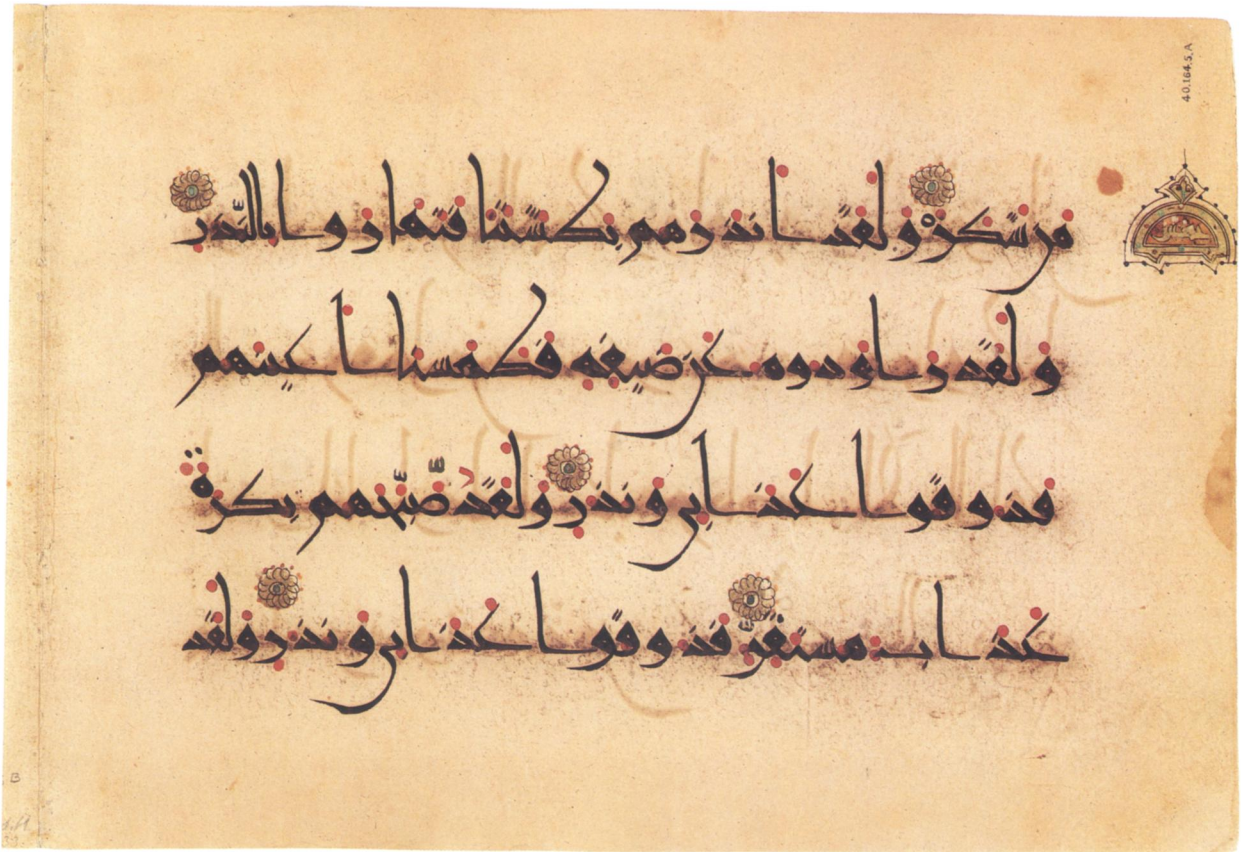 من شكر ولقد انذرهم بطشتنا فتماروا بالنذر
ولقد راودوه عن ضيفه فطمسنا اعينهم
فذوقوا عذابي ونذر ولقد صبحهم بكرة
عذاب مستقر فذوقوا عذابي ونذر ولقد
40.164.5.A
B